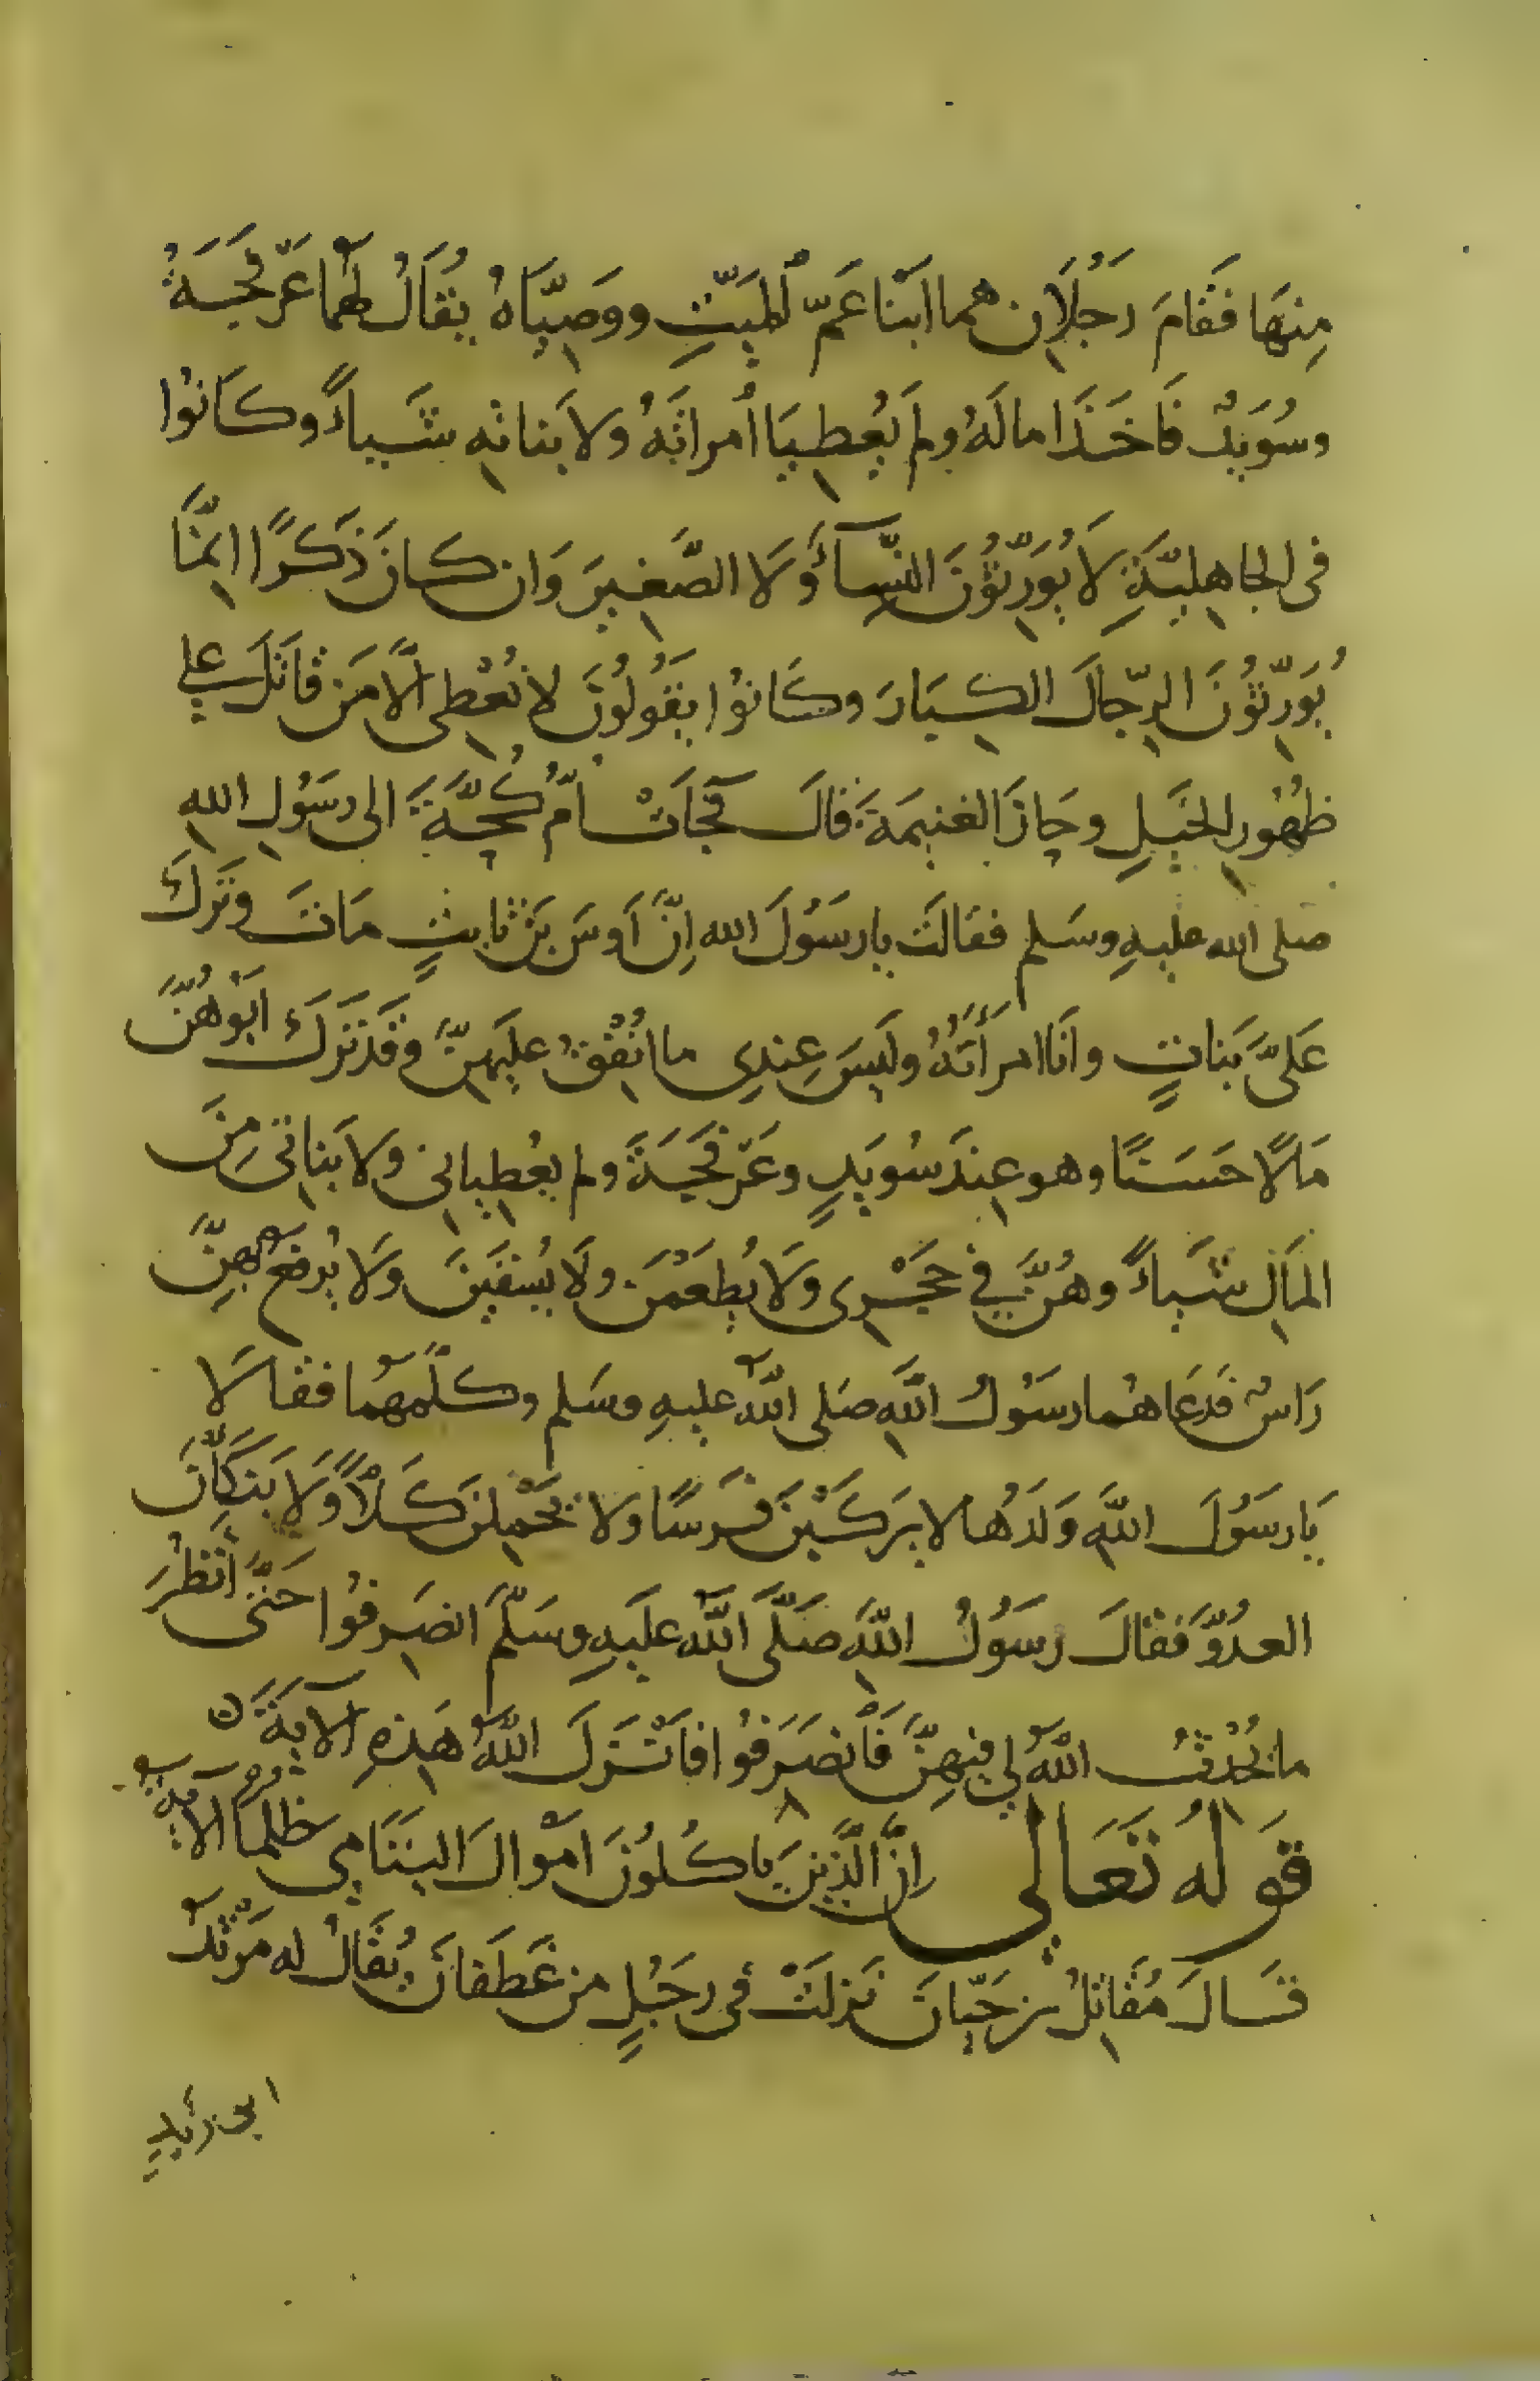 مِنهَا فَقَامَ رَجُلَانِ هما ابنا عَمّ المَيّتِ ووَصِيّاهُ يُقَالُ لهُمَا عَرْفَجَةُ
وسُوَيدٌ فَاخَذَا مالَهُ ولم يُعطِيَا امراتَهُ ولا بناتِهِ شَياءً وكَانُوا
في الجاهِليَّةِ لَا يُوَرّثُونَ النّسآءَ وَلَا الصَّغِيرَ وَان كانَ ذَكَرًا انّمَا
يُوَرّثُونَ الرّجالَ الكِبَارَ وكَانُوا يَقُولُونَ لا نُعْطِى الَّا مَن قَاتَلَ علي
ظُهُورِ الخَيلِ وحَازَ الغنيمَةَ قالَ فجَاتْ امُّ كُجَّةَ الى رسَوُلِ اللهِ
صلى الله عليهِ وسَلم فقالَت يارسَوُلَ الله اِنَّ اَوسَ بنَ ثابتٍ مَاتَ وتَركَ
عَلىَّ بَناتٍ واَنَا امرَأَتهُ ولَيسَ عِندِى ما انُفِقُ عليَهِنَّ وقَد تَرَكَ ابَوُهُنَّ
مَالًا حَسَنًا وهو عِندَ سُوَيدٍ وعَرْفَجَةَ ولم يعُطِيانِى ولا بَناتى مِنَ
المَالِ شَياءً وهُنَّ في حَجْرِى ولَا يُطعَمْنَ ولَا يُسقَينَ ولَا يُرفَعُ لهُنَّ
رَاسٌ فَدعَاهُما رسَوُلُ اللَّهِ صَلى اللهُ عليهِ وسَلم وكلَّمَهُمَا فقالَا
يَا رسَوُلَ اللَّهِ وَلَدُهَا لا يَركَبْنَ فَرسًا ولا يَحْمِلنَ كَلًّا وَلَا يَنكَأنَ
العدُوَّ فقالَ رسَوُلُ اللَّهِ صَلَّى اللَّهُ علَيهِ وسَلَّمَ انصَرفُوا حَتَّى أَنظُرَ
ما يُحْدِثُ اللَّهُ لي فيهِنَّ فَانصَرَفُوا فاَنْزَلَ اللَّهُ هَذِهِ الآيةَ ن
قَولهُ تَعَالَى اِنَّ الَّذِينَ ياكُلُونَ امْوَالَ اليَتَامي ظُلمًا الآية
قَالَ مُقَاتِلُ بن حَيّانَ نَزلَتْ في رجَلٍ من غَطَفَانَ يُقَالُ له مَرْثَدُ
ابن زَيدٍ